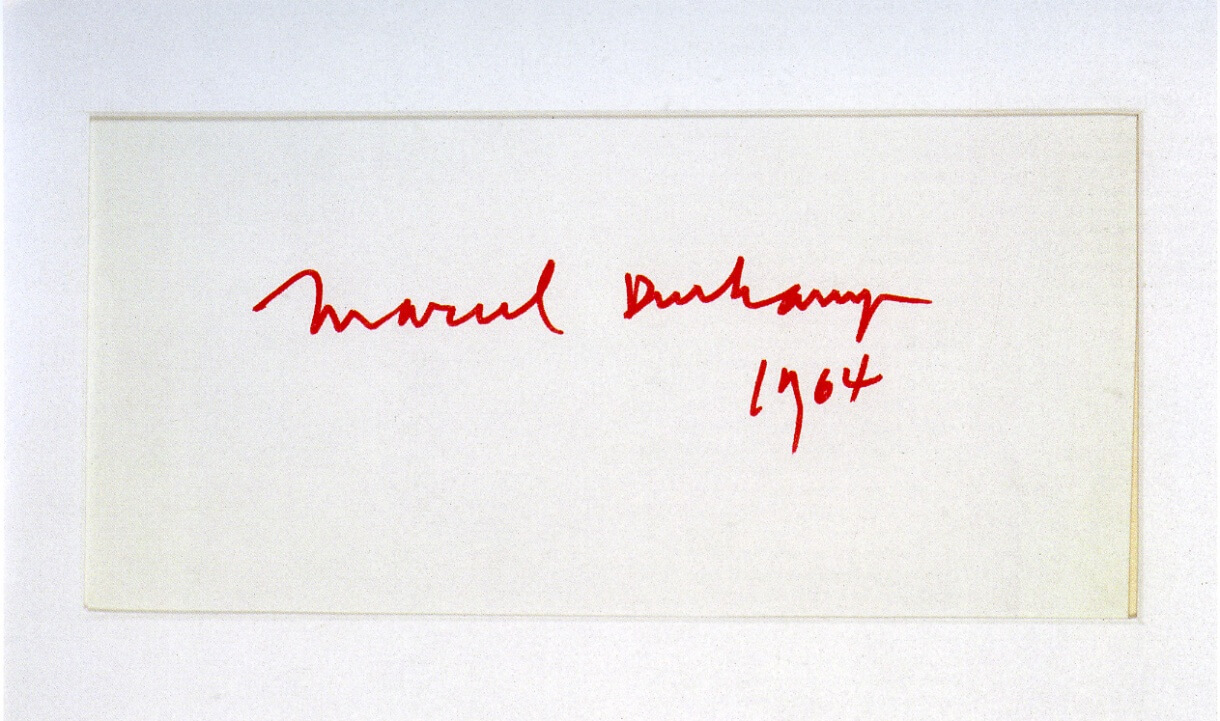 Marcel Duchamp
1964